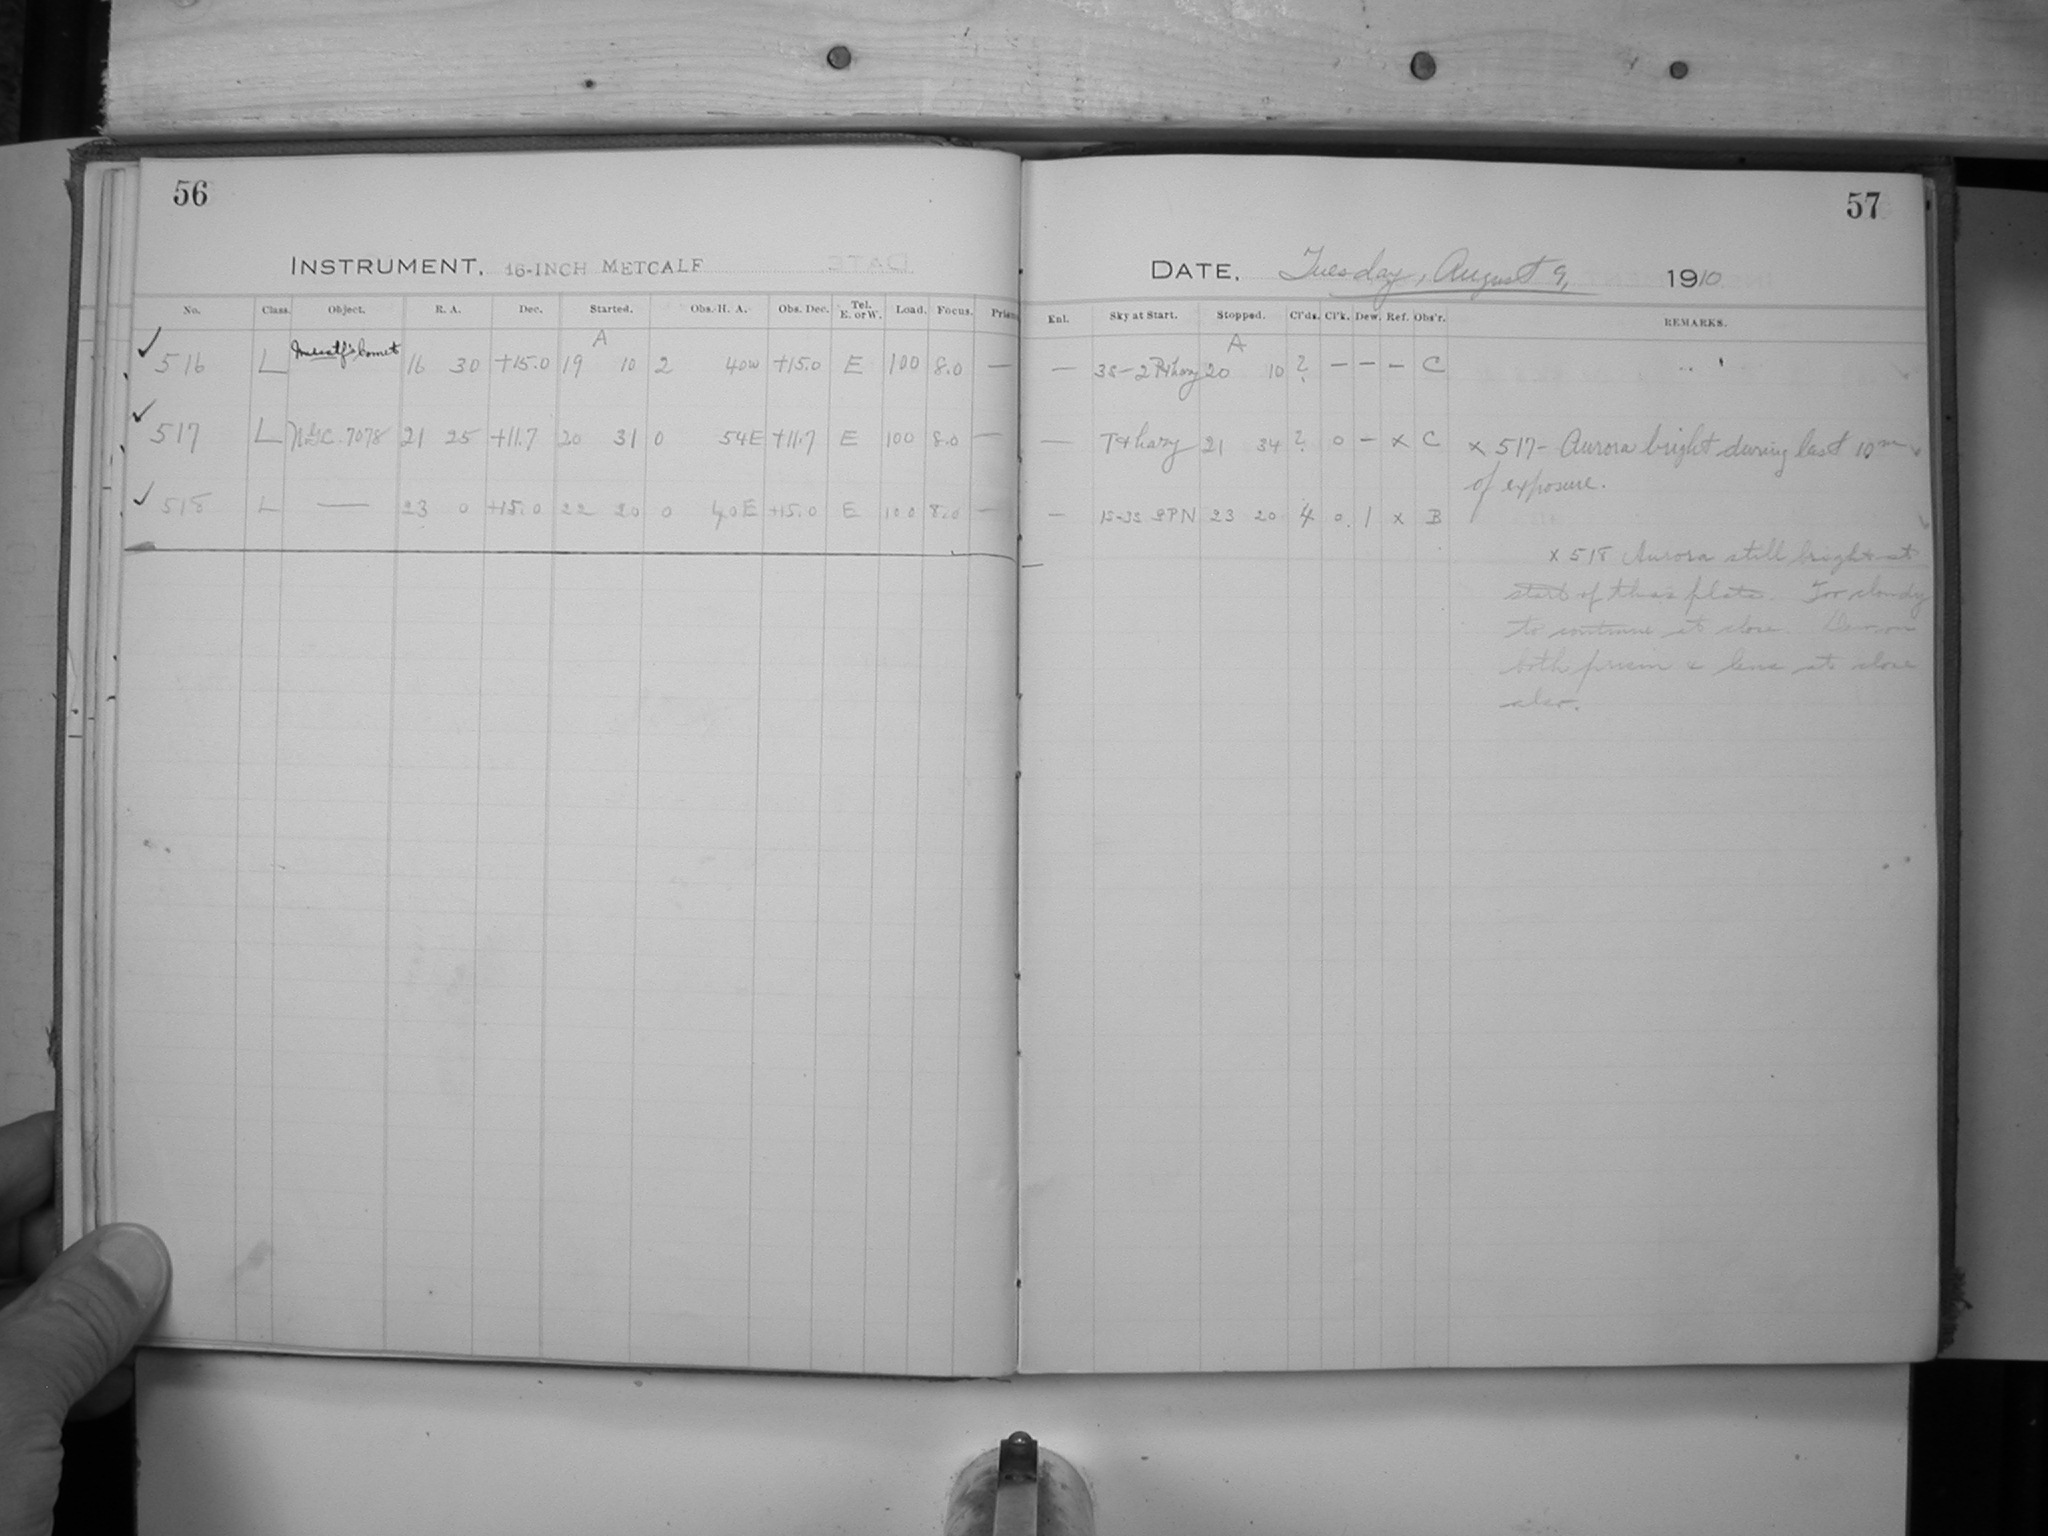 56
INSTRUMENT, 16-INCH METCALF
No. Class. Object. R. A. Dec. Started. Obs. H. A. Obs. Dec. Tel. E. or W. Load. Focus. Prism
A
516 L Metcalf's Comet 16 30 +15.0 19 10 2 40W +15.0 E 100 8.0 —
517 L N.G.C. 7078 21 25 +11.7 20 31 0 54E +11.7 E 100 8.0 —
518 L — 23 0 +15.0 22 20 0 40E +15.0 E 100 8.0 —
57
DATE, Tuesday, August 9, 1910
Enl. Sky at Start. Stopped. Cl'ds. Cl'k. Dew. Ref. Obs'r. REMARKS.
A
— 38-2 P+hazy 20 10 ? — — — C
— T+hazy 21 34 ? 0 — x C x 517- Aurora bright during last 10m
of exposure.
— 15-33 SPN 23 20 4 0 1 x B
x 518 Aurora still bright at
start of this plate. Too cloudy
to continue at close. Dew on
both prism & lens at close
also.